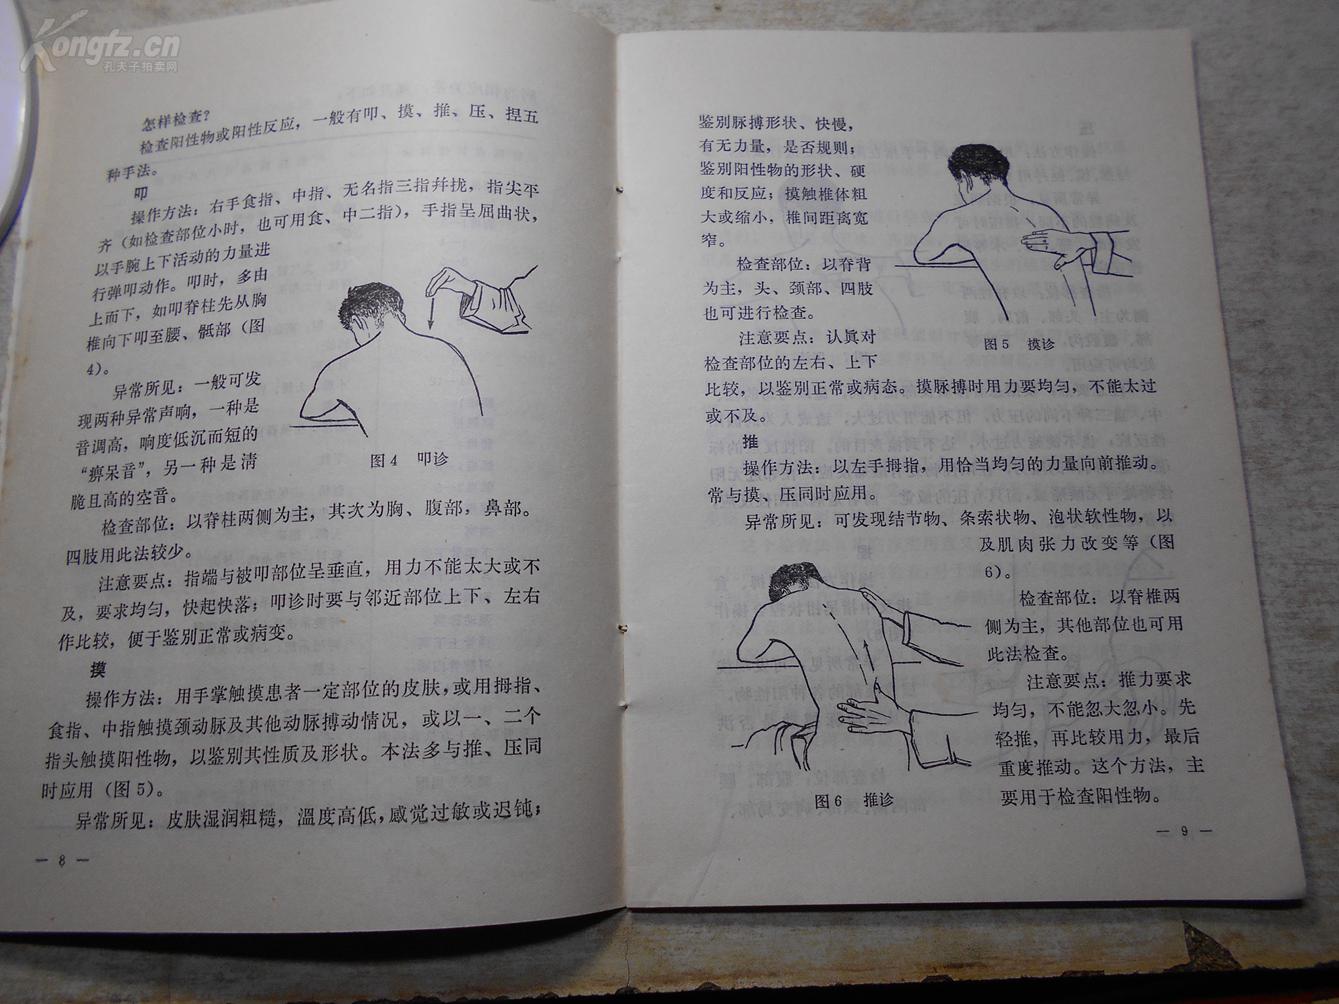 Kongfz.cn
孔夫子拍卖网
怎样检查？
检查阳性物或阳性反应，一般有叩、摸、推、压、捏五
种手法。
叩
操作方法：右手食指、中指、无名指三指幷拢，指尖平
齐（如检查部位小时，也可用食、中二指），手指呈屈曲状，
以手腕上下活动的力量进
行弹叩动作。叩时，多由
上而下，如叩脊柱先从胸
椎向下叩至腰、骶部（图
4）。
异常所见：一般可发
现两种异常声响，一种是
音调高，响度低沉而短的
“痹呆音”，另一种是清
脆且高的空音。
图4 叩诊
检查部位：以脊柱两侧为主，其次为胸、腹部，鼻部。
四肢用此法较少。
注意要点：指端与被叩部位呈垂直，用力不能太大或不
及，要求均匀，快起快落；叩诊时要与邻近部位上下、左右
作比较，便于鉴别正常或病变。
摸
操作方法：用手掌触摸患者一定部位的皮肤，或用拇指、
食指、中指触摸颈动脉及其他动脉搏动情况，或以一、二个
指头触摸阳性物，以鉴别其性质及形状。本法多与推、压同
时应用（图5）。
异常所见：皮肤湿润粗糙，溫度高低，感觉过敏或迟钝；
— 8 —
鉴别脉搏形状、快慢，
有无力量，是否规则；
鉴别阳性物的形状、硬
度和反应；摸触椎体粗
大或缩小，椎间距离宽
窄。
检查部位：以脊背
为主，头、颈部、四肢
也可进行检查。
注意要点：认眞对
检查部位的左右、上下
图5 摸诊
比较，以鉴别正常或病态。摸脉搏时用力要均匀，不能太过
或不及。
推
操作方法：以左手拇指，用恰当均匀的力量向前推动。
常与摸、压同时应用。
异常所见：可发现结节物、条索状物、泡状软性物，以
及肌肉张力改变等（图
6）。
检查部位：以脊椎两
侧为主，其他部位也可用
此法检查。
注意要点：推力要求
均匀，不能忽大忽小。先
轻推，再比较用力，最后
重度推动。这个方法，主
要用于检查阳性物。
图6 推诊
— 9 —